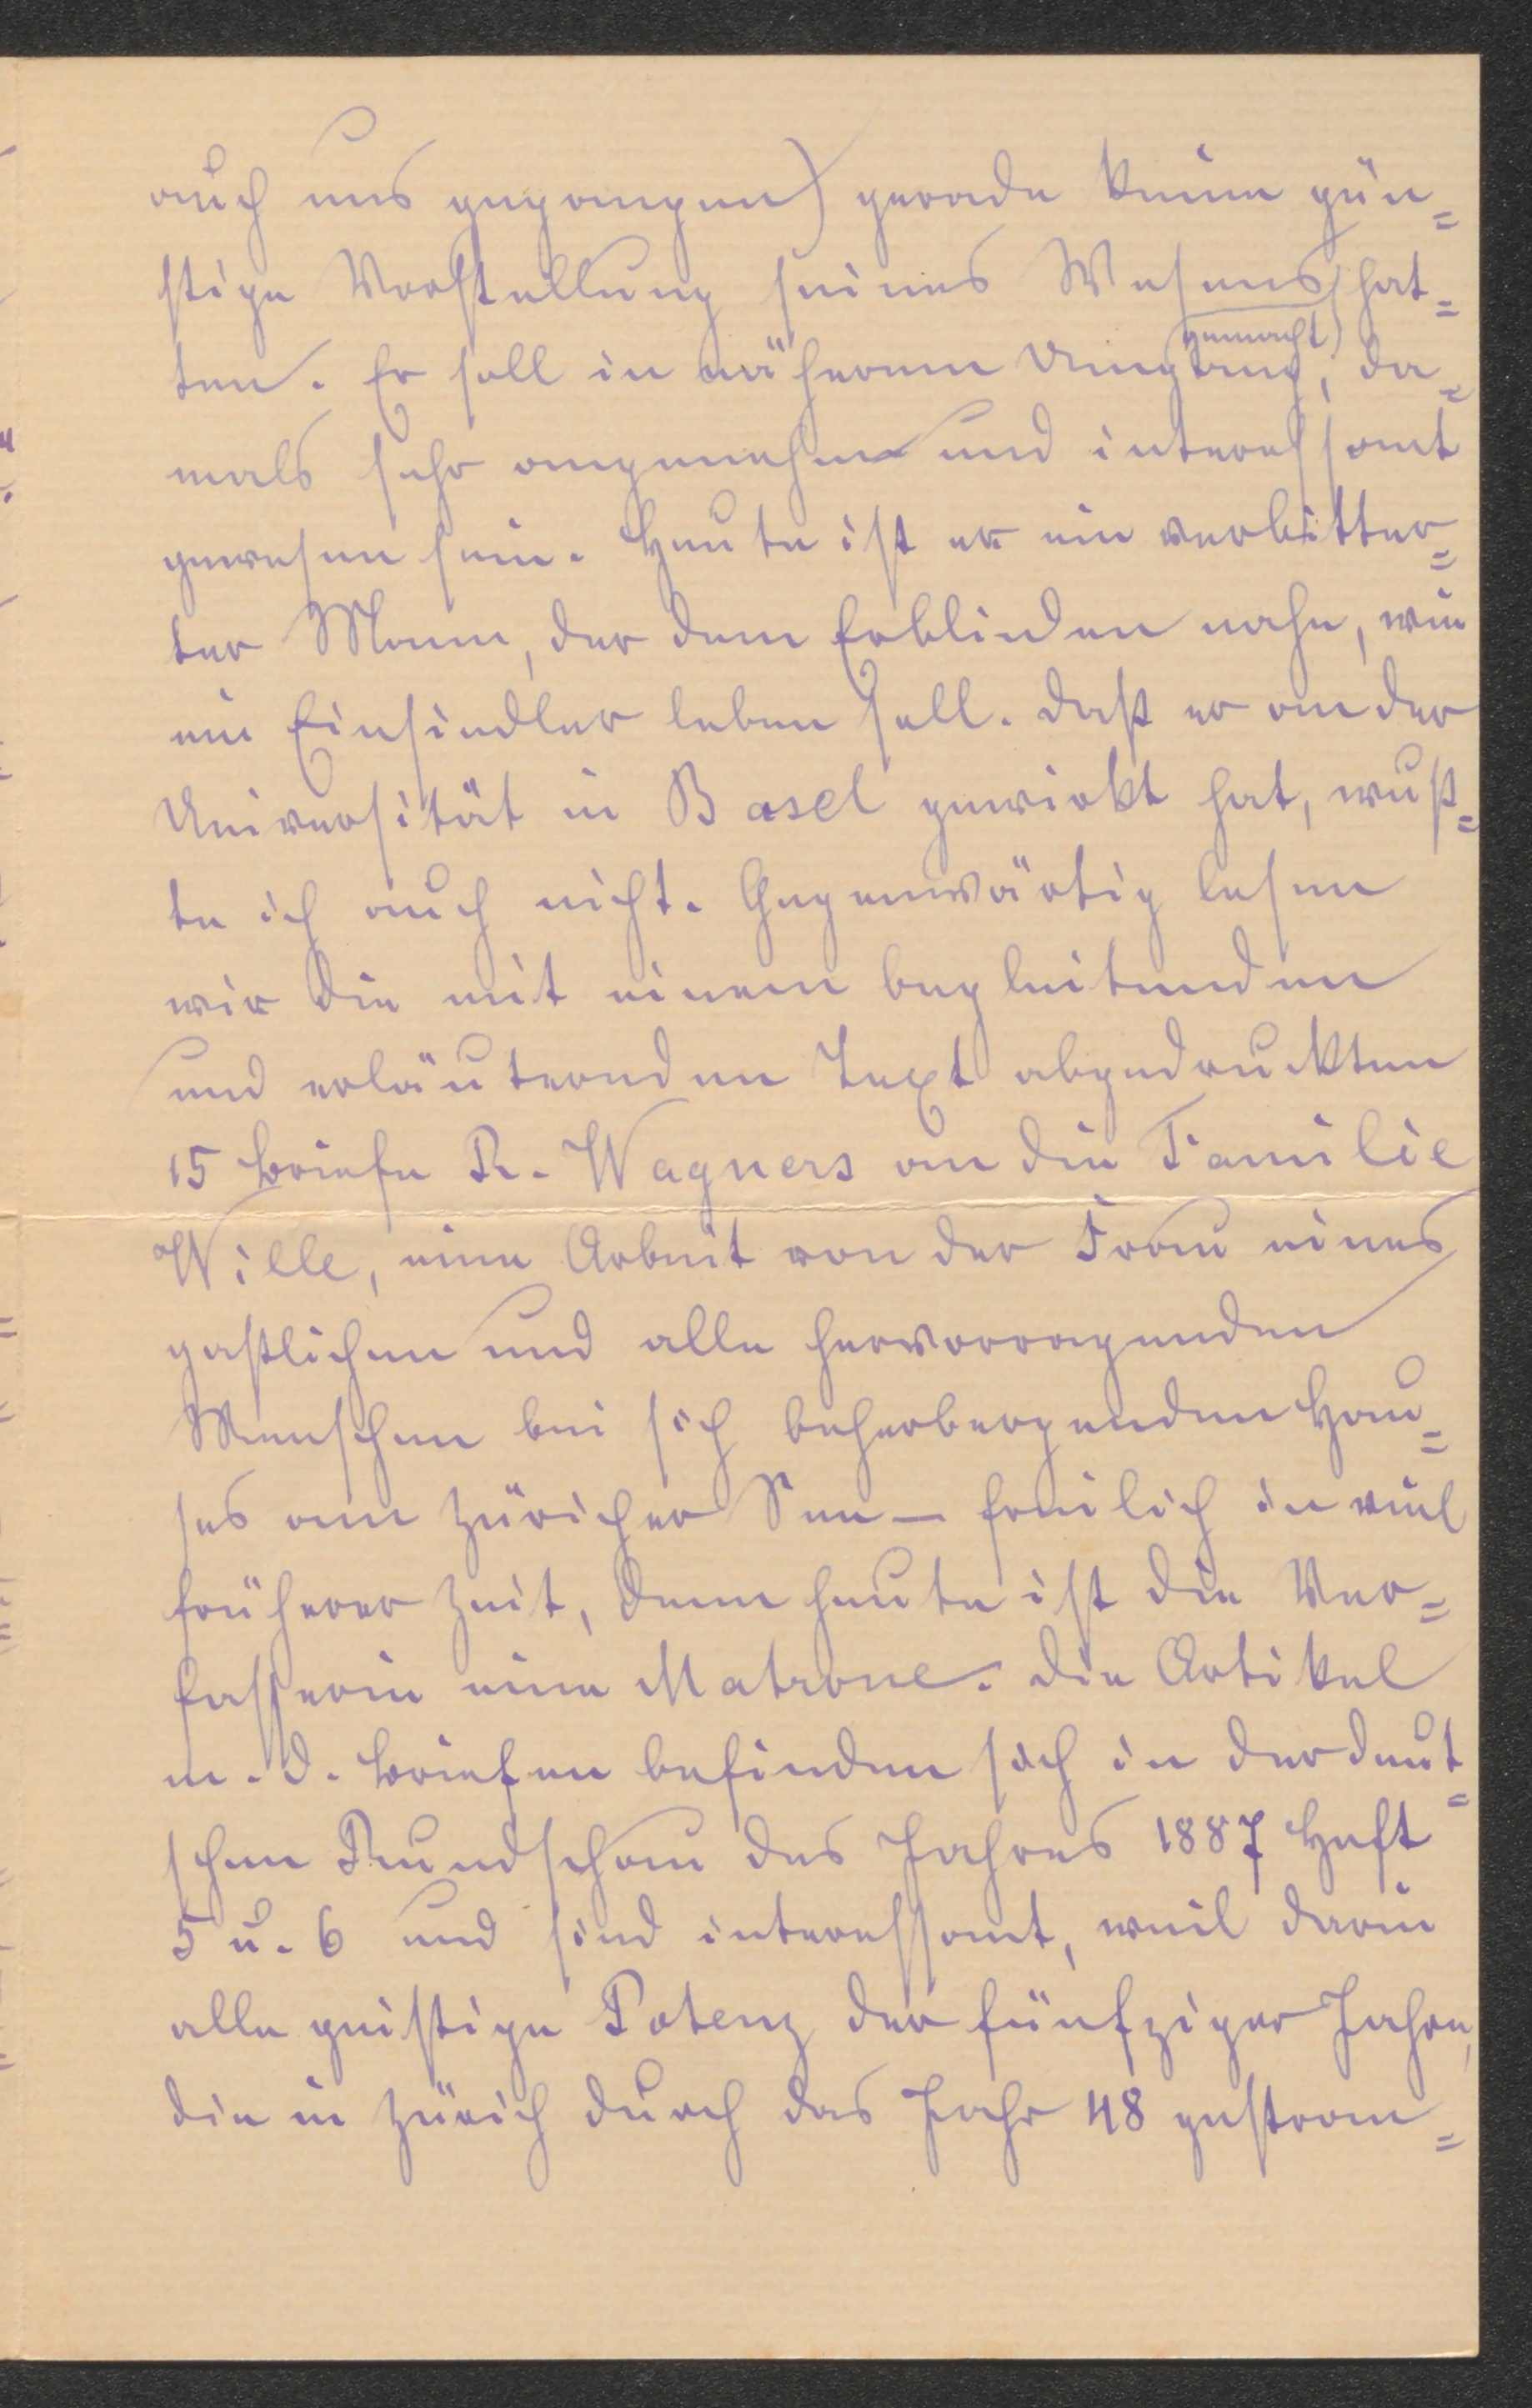 auch uns gegangen) gerade keine gün=
stige Vorstellung seines Wesens hat=
gemacht
ten. Er soll in näherem Umgang, da=
mals sehr angenehm und interessant
gewesen sein. Heute ist er ein verbitter=
ter Mann, der dem Erblinden nahe, wie
ein Einsiedler leben soll. Daß er an der
Universität in Basel gewirkt hat, wuß=
te ich auch nicht. Gegenwärtig lesen
wir die mit einem begleitenden
und erläuternden Text abgedruckten
15 Briefe R. Wagners an die Familie
Wille, eine Arbeit von der Frau eines
gastlichen und alle hervorragenden
Menschen bei sich beherbergenden Hau=
ses am Züricher See – freilich in viel
früherer Zeit, denn heute ist die Ver=
fasserin eine Matrone. Die Artikel
m. d. Briefen befinden sich in der deut=
schen Rundschau des Jahres 1887 Heft
5 u. 6 und sind interessant, weil darin
alle geistige Potenz der fünfziger Jahre,
die in Zürich durch das Jahr 48 zustrom=